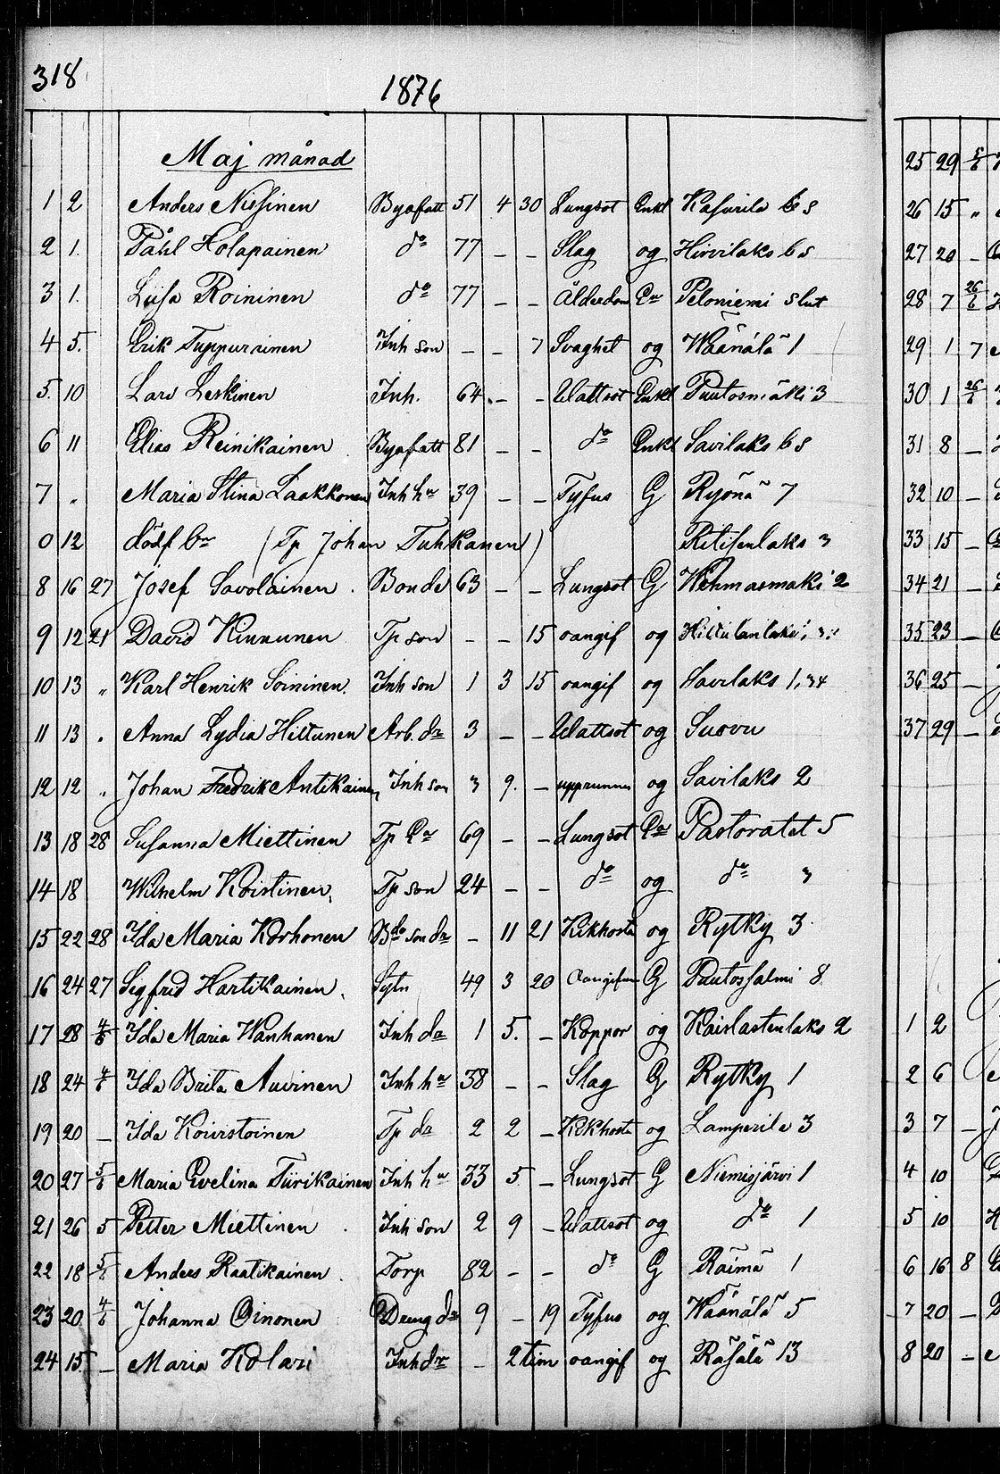 318
1876
Maj månad
1 2 Anders Nissinen Byafatt 51 4 30 Lungsot Enkl Kasurila 68
2 1. Påhl Holapainen do 77 – – Slag og Hirvilaks 68
3 1. Liisa Roininen do 77 – – Ålderdom Ea Peloniemi slut
4 5. Erik Tuppurainen Inh son – – 7 Svaghet og Wäänälä 1
5. 10 Lars Leskinen Inh. 64 – – Wattsot Enkl Puutosmäki 3
6 11 Elias Reinikainen Byafatt 81 – – do Enkl Savilaks 68
7 „ Maria Stina Laakkonen Inh hu 39 – – Tyfus G Ryönä 7
0 12 dödf br (Tp Johan Tuhkanen) Ritisenlaks 3
8 16 27 Josef Savolainen Bonde 63 – – Lungsot G Wehmasmäki 2
9 12 21 David Kinnunen Tp son – – 15 oangif og Hiltulanlaks
10 13 „ Karl Henrik Soininen Inh son 1 3 15 oangif og Savilaks 1,34
11 13 „ Anna Lydia Hiltunen Arb. dr 3 – – Wattsot og Suovu
12 12 „ Johan Fredrik Antikainen Inh son 3 9. – upprunnen og Savilaks 2
13 18 28 Susanna Miettinen Tp Ea 69 – – Lungsot Ea Pastoratet 5
14 18 Wilhelm Koistinen Tp son 24 – – do og do 3
15 22 28 Ida Maria Korhonen Bde son dr – 11 21 Kikhosta og Rytky 3
16 24 27 Sigfrid Hartikainen Sytn 49 3 20 Oangifven G Puutossalmi 8
17 28 4/6 Ida Maria Wanhanen Inh dr 1 5. – Koppor og Kaislastenlaks 2
18 24 4/6 Ida Brita Auvinen Inh hu 38 – – Slag G Rytky 1
19 20 – Ida Koivistoinen Tp dr 2 2 – Kikhosta og Lamperila 3
20 27 5/6 Maria Evelina Tiirikainen Inh hu 33 5 – Lungsot G Niemisjärvi 1
21 26 5 Petter Miettinen Inh son 2 9 – Wattsot og do 1
22 18 5/6 Anders Raatikainen Torp 82 – – do G Räimä 1
23 20 4/6 Johanna Oinonen Dreng dr 9 – 19 Tyfus og Wäänälä 5
24 15 – Maria Kolari Inh dr – 2 tim oangif og Räsälä 13
25 29 5/6
26 15 „
27 20 –
28 7 26/6
29 1 7
30 1 26/6
31 8 –
32 10 –
33 15 –
34 21 –
35 23 –
36 25 –
37 29 –
1 2
2 6
3 7 –
4 10
5 10
6 16 8
7 20 –
8 20 –